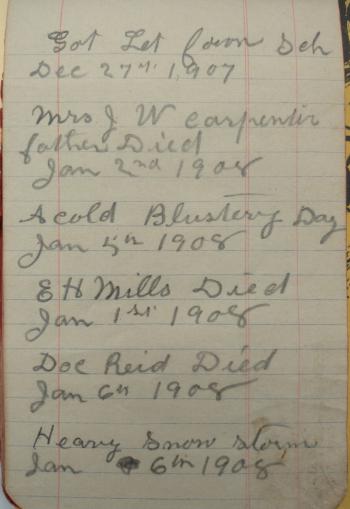 Got Let from Sch
Dec 27th 1907
Mrs J W Carpenter
father Died
Jan 2nd 1908
A cold Blustery Day
Jan 5th 1908
E H Mills Died
Jan 1st 1908
Doc Reid Died
Jan 6th 1908
Heavy Snow Storm
Jan 6th 1908